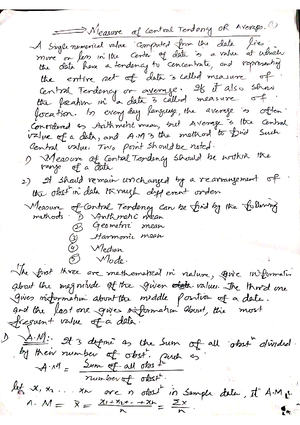 Measure of Central Tendency OR Averages. (1)
A single numerical value computed from the data lies
more or less in the center of data is a value at which
the data have a tendency to concentrate, and representing
the entire set of data is called measure of
Central Tendency or average. It is also shows
the location in a data is called measure of
location. In every day language, the average is often
Considered as Arithmetic mean, but Average is the Central
value of a data, and A.M is the method to find such
Central value. Two point should be noted.
1) Measure of Central Tendency should be within the
range of a data.
2) It should remain unchanged by a rearrangement of
the obs^n in data through different order.
Measure of Central Tendency can be find by the following
methods. 1) Arithmetic mean
2) Geometric mean
3) Harmonic mean
4) Median
5) Mode.
The first three are mathematical in nature, give information
about the magnitude of the given value. The third one
gives information about the middle position of a data.
and the last one gives information about, the most
frequent value of a data.
1) A.M:- It is define as the Sum of all obs^n divided
by their number of obs^n. such as
A.M = Sum of all obs^n
number of obs^n.
let x₁, x₂ ... xₙ are n obs^n in sample data, it A.M
A.M = x̄ = x₁+x₂+...+xₙ / n = Σx / n